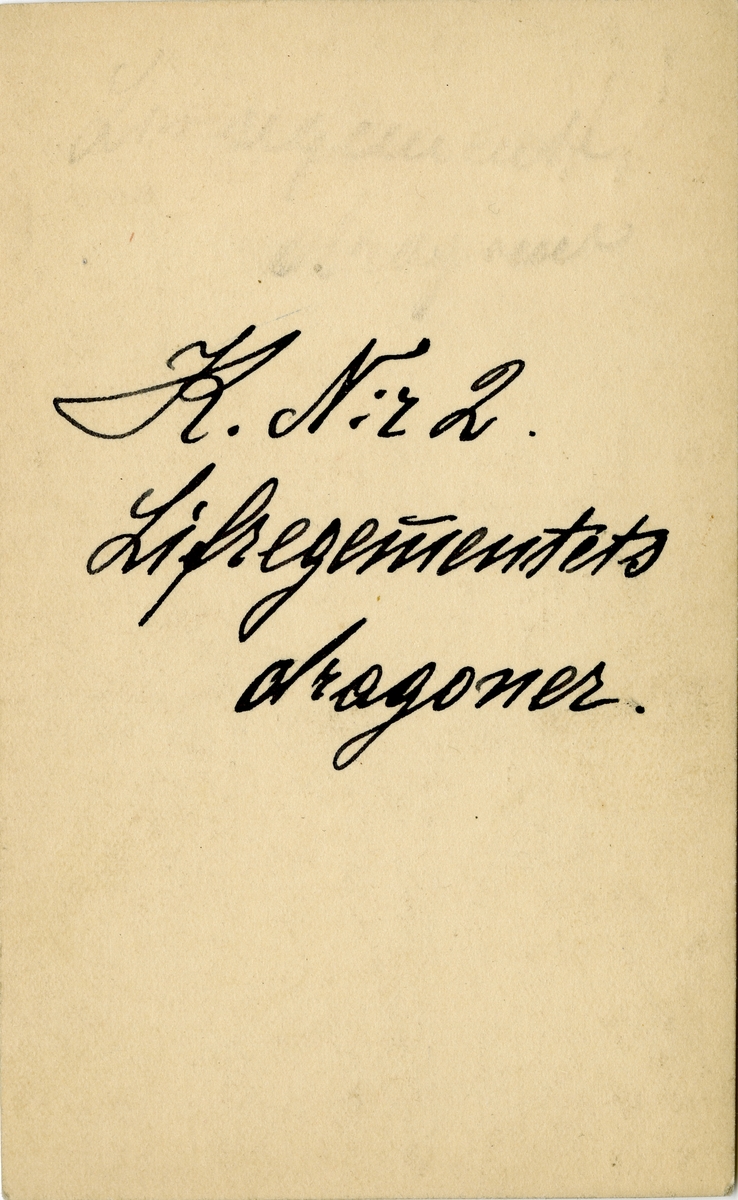 K. N:r 2.
Lifregem̅entets
dragoner.